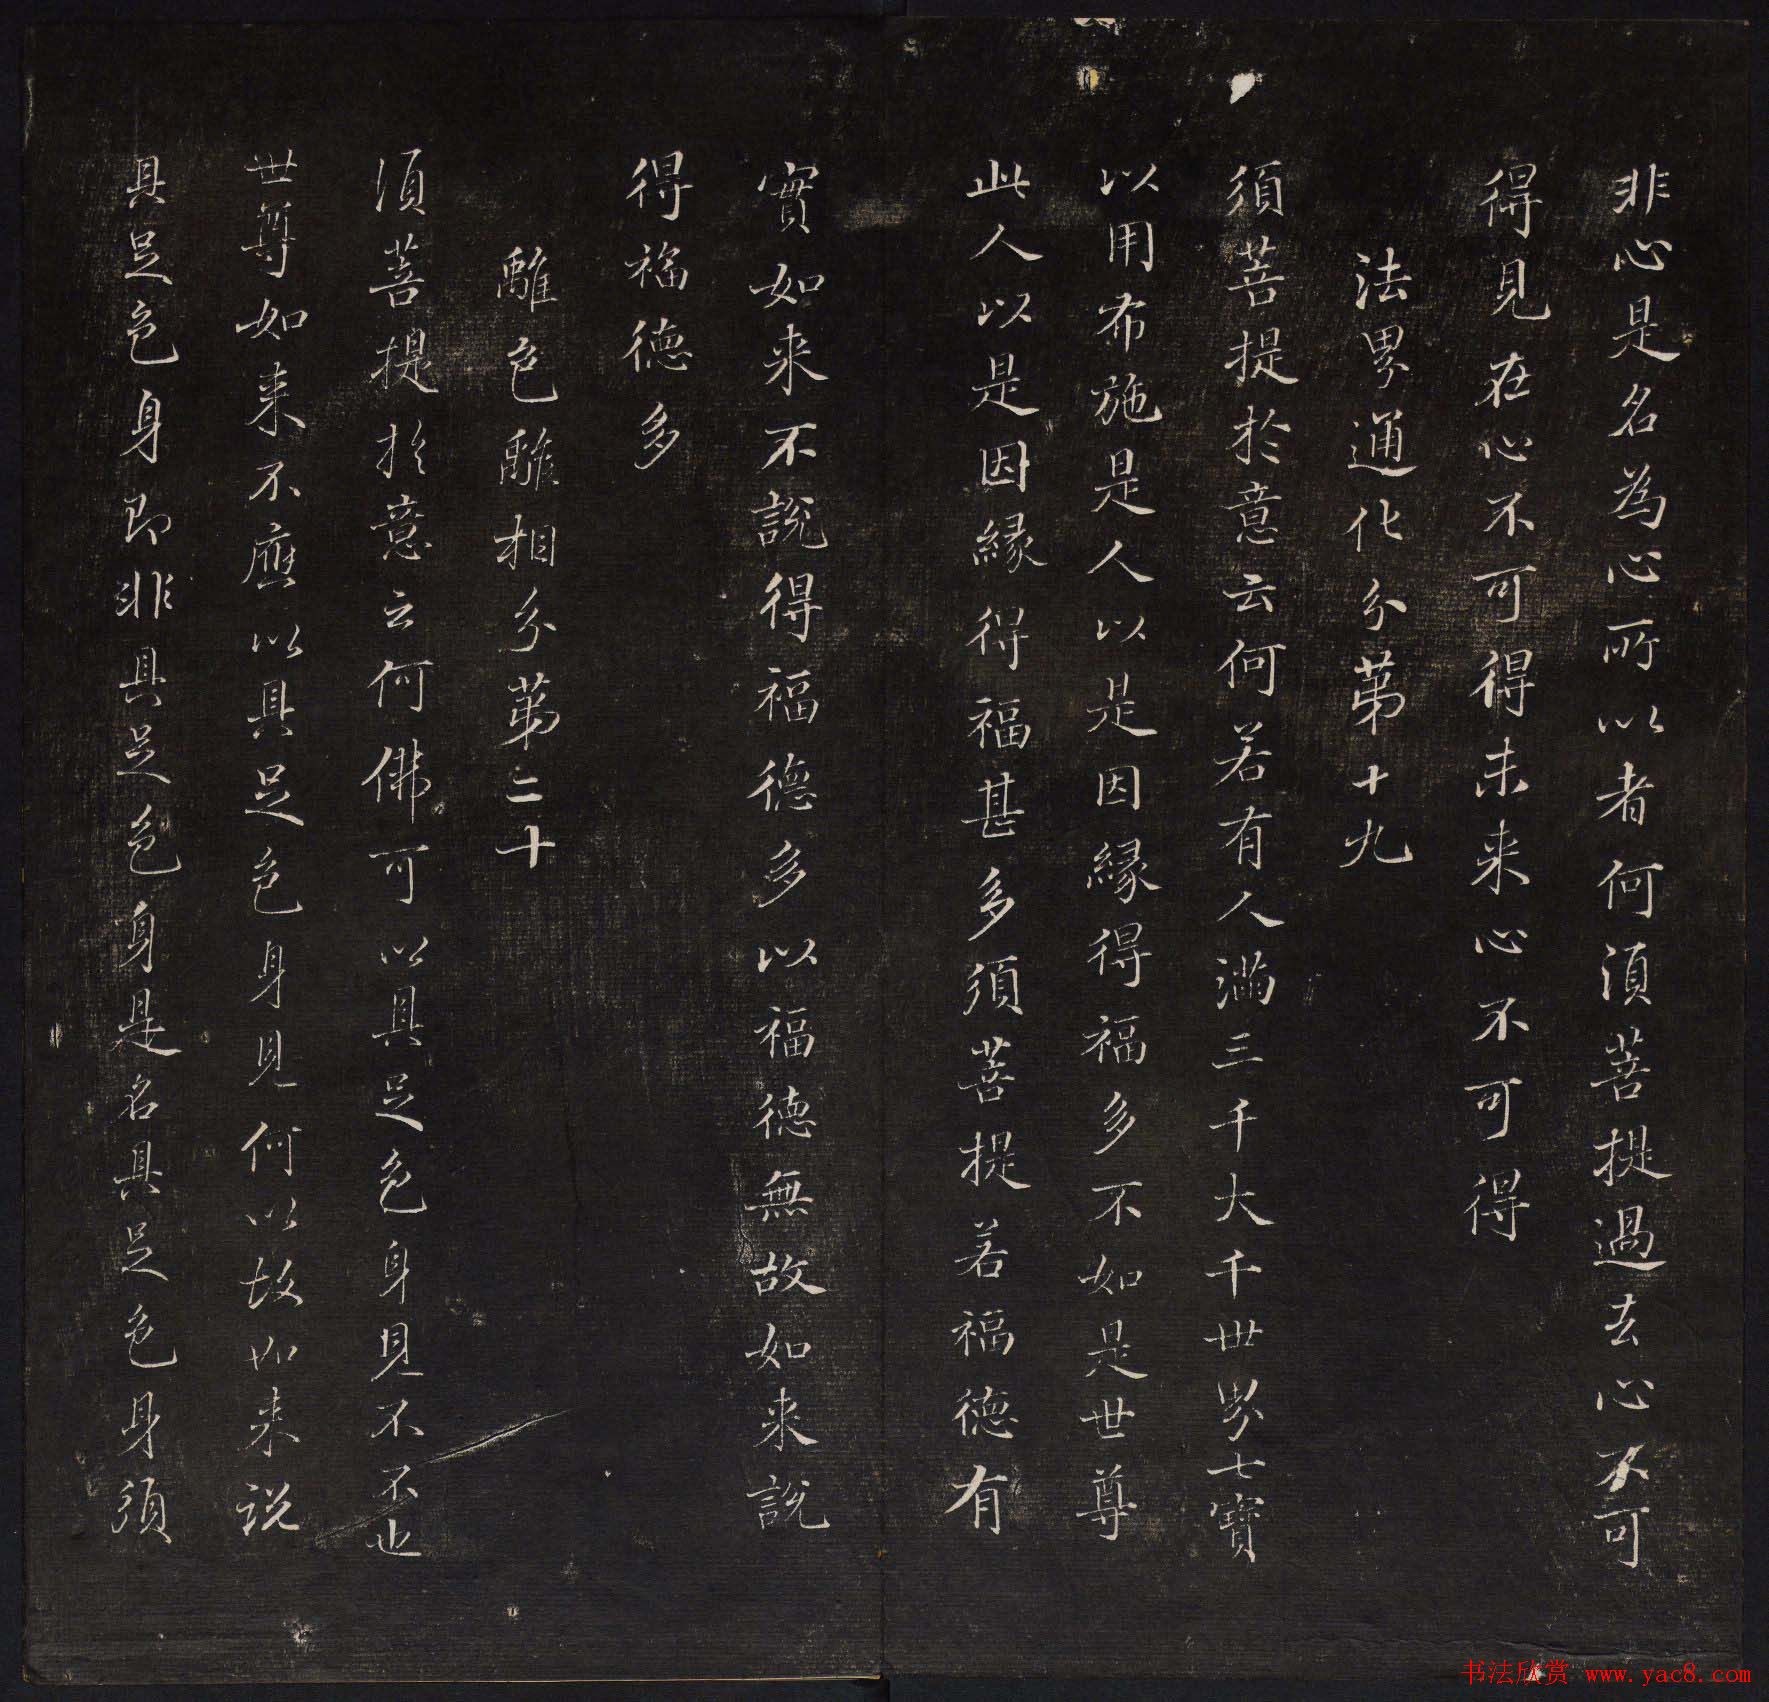 非心是名為心所以者何須菩提過去心不可
得見在心不可得未来心不可得
法界通化分第十九
須菩提於意云何若有人滿三千大千世界七寶
以用布施是人以是因緣得福多不如是世尊
此人以是因緣得福甚多須菩提若福德有
實如来不說得福德多以福德無故如来說
得福德多
離色離相分第二十
須菩提於意云何佛可以具足色身見不不也
世尊如来不應以具足色身見何以故如来說
具足色身即非具足色身是名具足色身須
书法欣赏 www.yac8.com